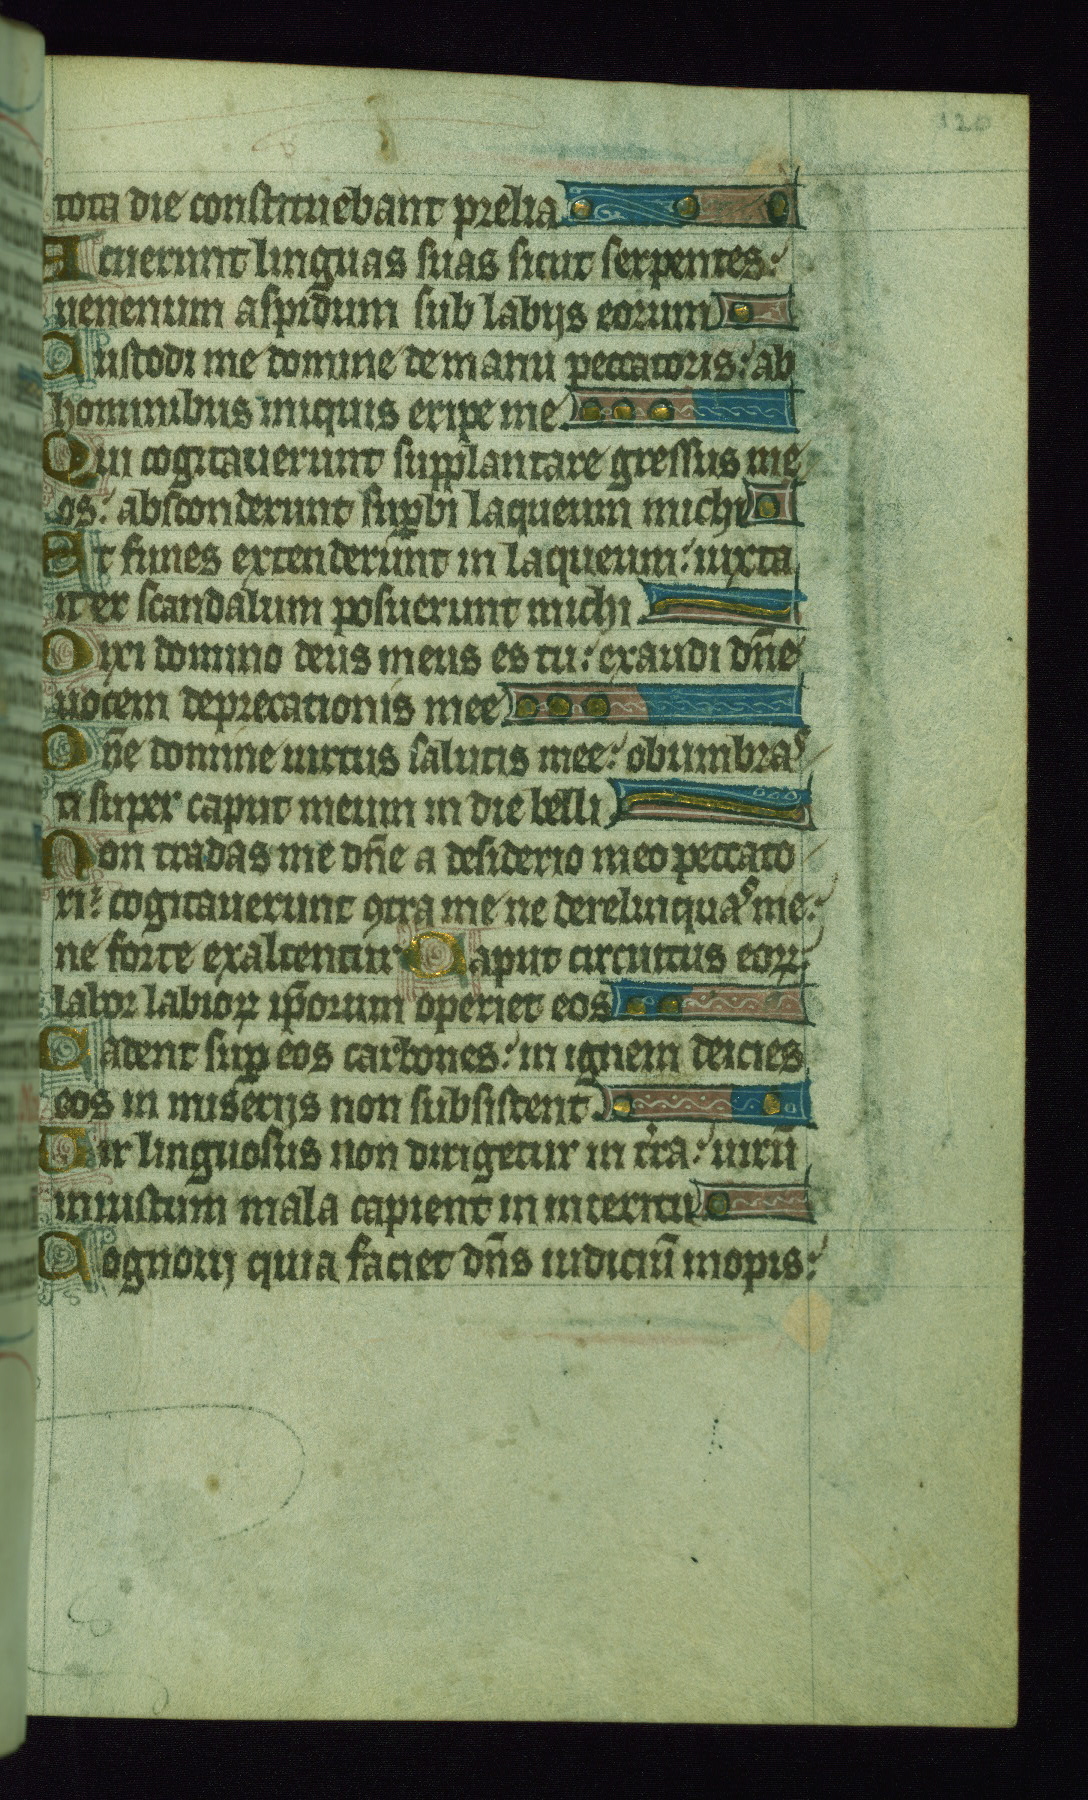 120
tota die constituebant prelia
Acuerunt linguas suas sicut serpentes:
uenenum aspidum sub labijs eorum
Custodi me domine de manu peccatoris: ab
hominibus iniquis eripe me.
Qui cogitauerunt supplantare gressus me
os: absconderunt supbi laqueum michi
Et funes extenderunt in laqueum: iuxta
iter scandalum posuerunt michi
Dixi domino deus meus es tu: exaudi dñe
uocem deprecationis mee
Dñe domine uirtus salutis mee: obumbras
ti super caput meum in die belli
Non tradas me dñe a desiderio meo peccato
ri: cogitauerunt ꝯtra me ne derelinquas me:
ne forte exaltentur Caput circuitus eoꝝ
labor labioꝝ ip̃orum operiet eos
Cadent sup eos carbones: in ignem deicies
eos in miserijs non subsistent.
Uir linguosus non dirigetur in tr̃a: uirũ
iniustum mala capient in interitu
Cognoui quia faciet dñs iudiciũ inopis: